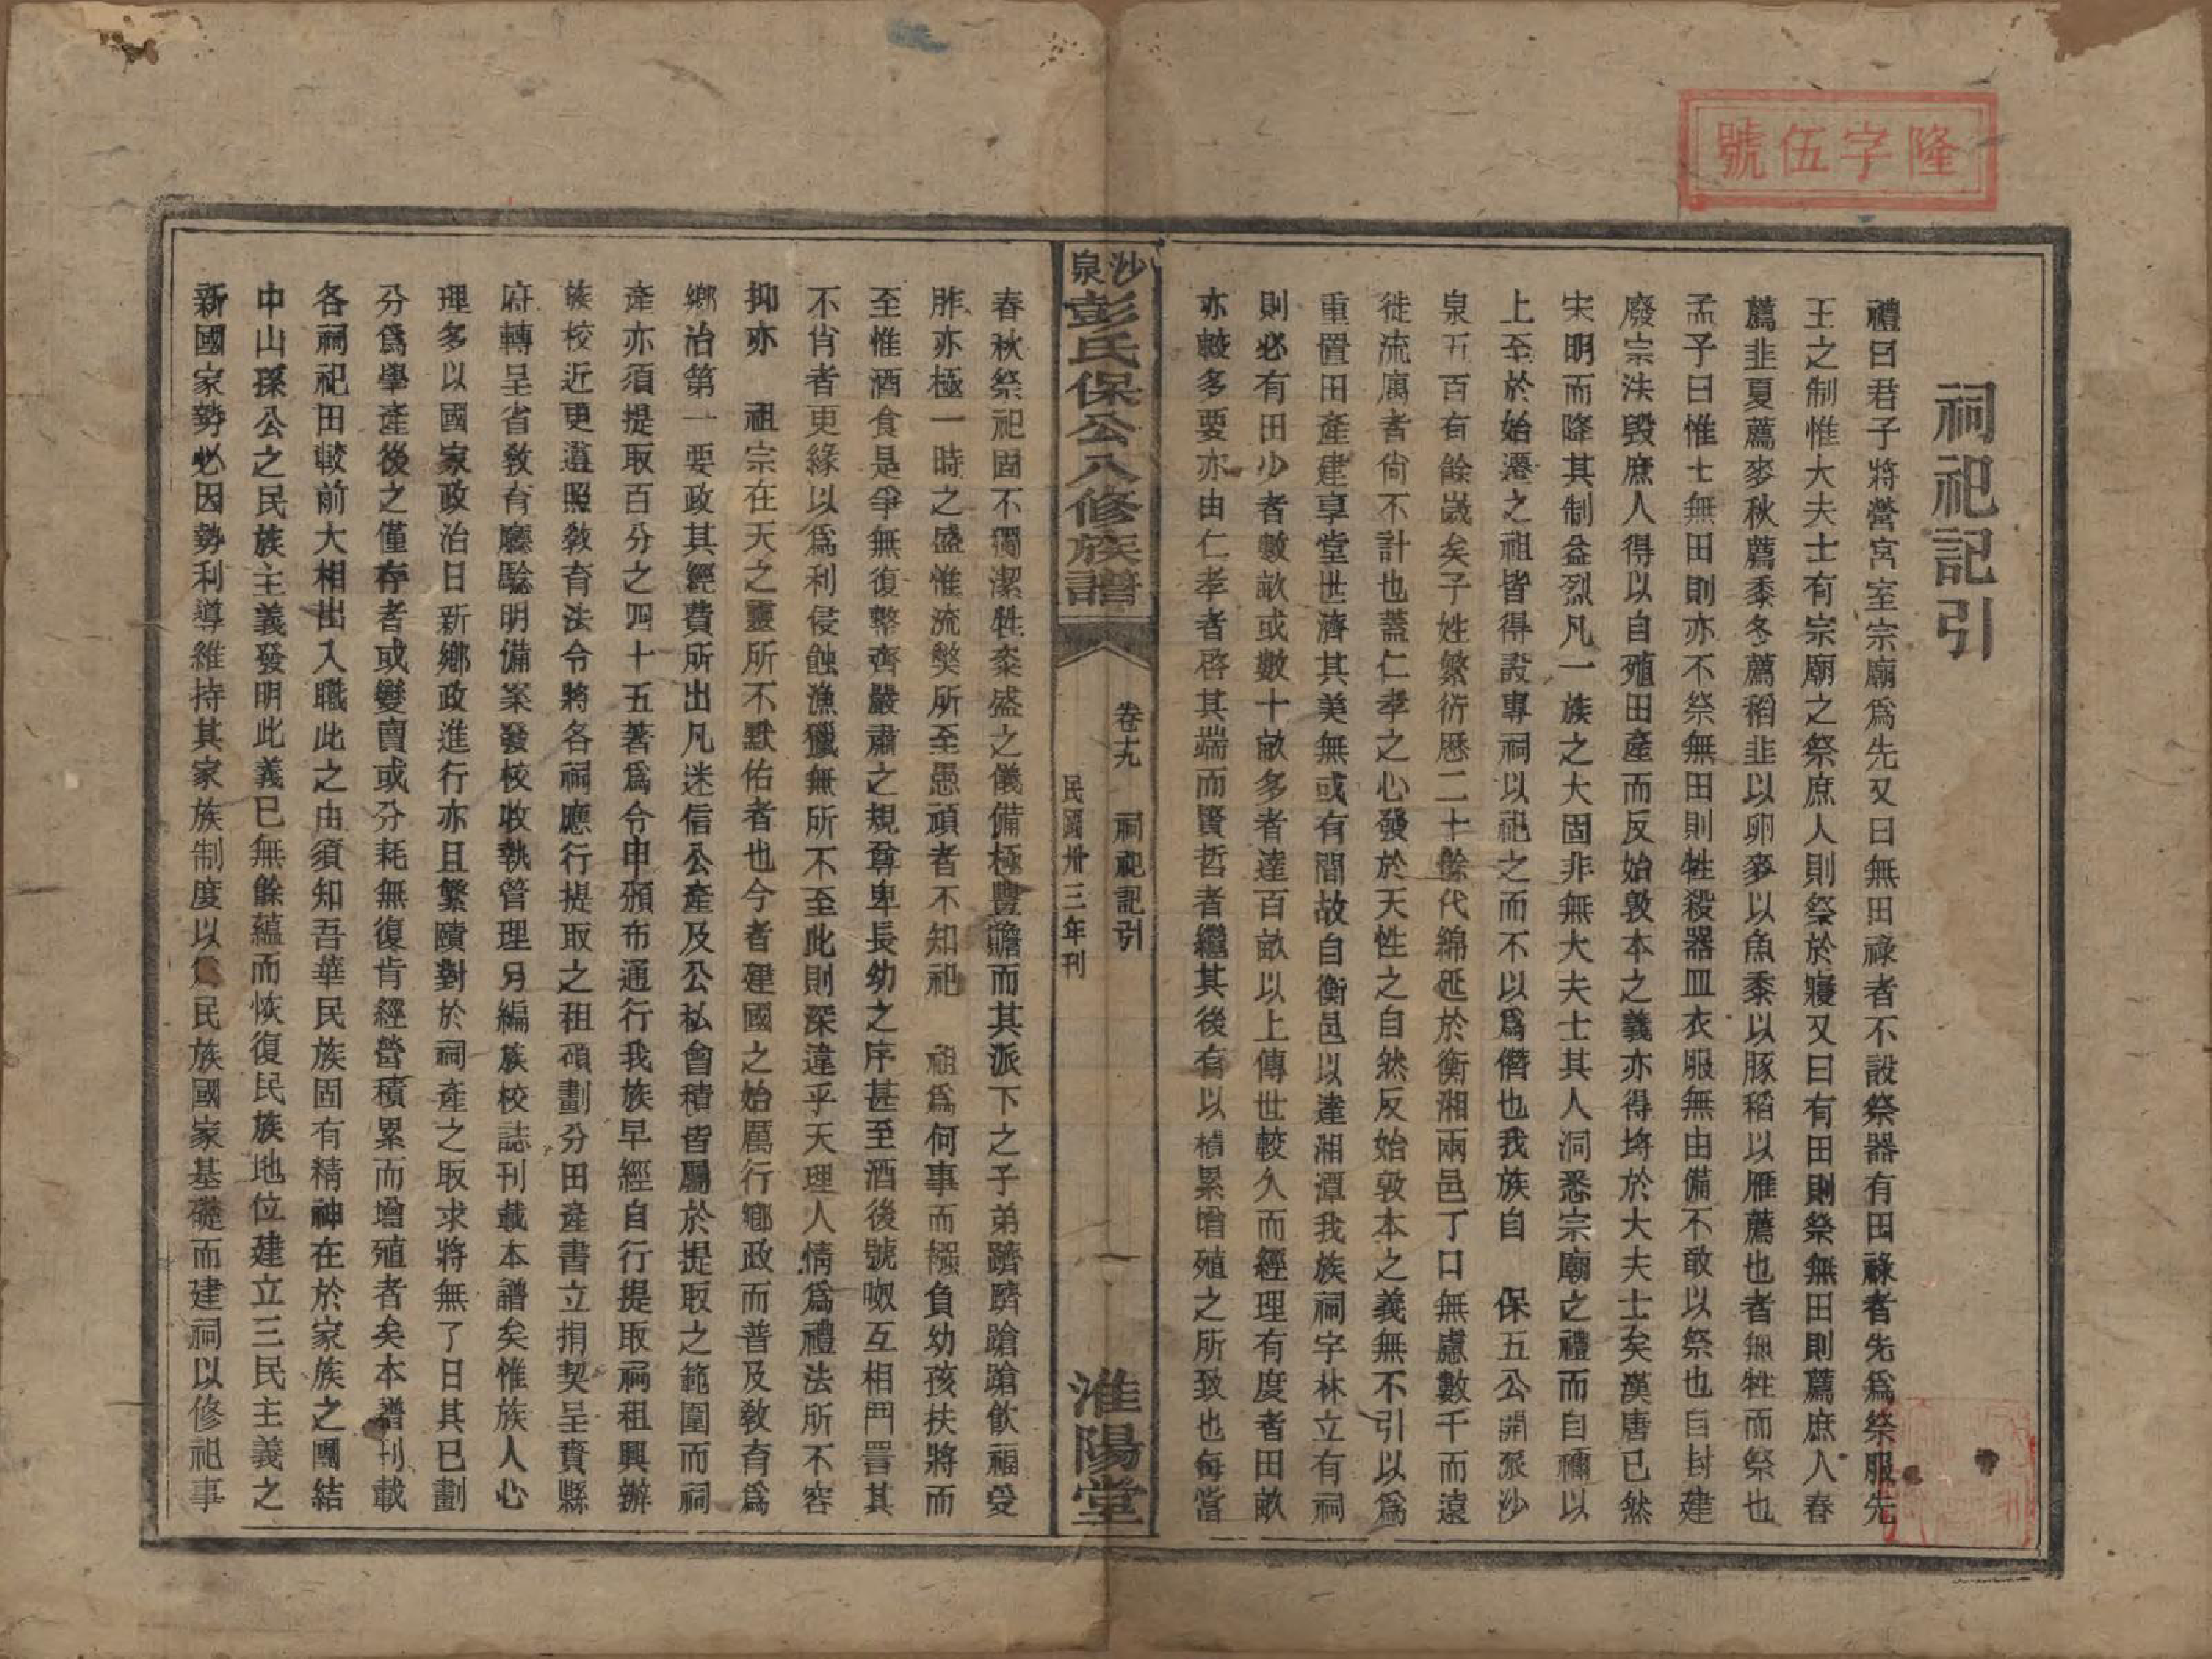 隆字伍號
祠祀記引
禮曰君子將營宮室宗廟爲先又曰無田祿者不設祭器有田祿者先爲祭服先
王之制惟大夫士有宗廟之祭庶人則祭於寢又曰有田則祭無田則薦庶人春
薦韭夏薦麥秋薦黍冬薦稻韭以卵麥以魚黍以豚稻以雁薦也者無牲而祭也
孟子曰惟士無田則亦不祭無田則牲殺器皿衣服無由備不敢以祭也自封建
廢宗法毀庶人得以自殖田產而反始敦本之義亦得埒於大夫士矣漢唐已然
宋明而降其制益烈凡一族之大固非無大夫士其人洞悉宗廟之禮而自禰以
上至於始遷之祖皆得設專祠以祀之而不以爲僭也我族自 保五公開派沙
泉五百有餘歲矣子姓繁衍歷二十餘代綿延於衡湘兩邑丁口無慮數千而遠
徙流寓者尙不計也蓋仁孝之心發於天性之自然反始敦本之義無不引以爲
重置田產建享堂世濟其美無或有間故自衡邑以達湘潭我族祠宇林立有祠
則必有田少者數畝或數十畝多者達百畝以上傳世較久而經理有度者田畝
亦較多要亦由仁孝者啓其端而賢哲者繼其後有以積累增殖之所致也每當
沙泉彭氏保公八修族譜
卷十九 祠祀記引
民國卅三年刊
一
淮陽堂
春秋祭祀固不獨潔牲粢盛之儀備極豐贍而其派下之子弟躋躋蹌蹌飲福受
胙亦極一時之盛惟流獘所至愚頑者不知祀 祖爲何事而襁負幼孩扶將而
至惟酒食是爭無復整齊嚴肅之規尊卑長幼之序甚至酒後號呶互相鬥詈其
不肖者更緣以爲利侵蝕漁獵無所不至此則深違乎天理人情爲禮法所不容
抑亦 祖宗在天之靈所不默佑者也今者建國之始厲行鄕政而普及敎育爲
鄕治第一要政其經費所出凡迷信公產及公私會積皆屬於提取之範圍而祠
產亦須提取百分之四十五著爲令甲頒布通行我族早經自行提取祠租興辦
族校近更遵照敎育法令將各祠應行提取之租碩劃分田產書立捐契呈賫縣
府轉呈省敎育廳驗明備案發校收執管理另編族校誌刊載本譜矣惟族人心
理多以國家政治日新鄕政進行亦且繁賾對於祠產之取求將無了日其已劃
分爲學產後之僅存者或變賣或分耗無復肯經營積累而增殖者矣本譜刊載
各祠祀田較前大相出入職此之由須知吾華民族固有精神在於家族之團結
中山孫公之民族主義發明此義已無餘蘊而恢復民族地位建立三民主義之
新國家勢必因勢利導維持其家族制度以爲民族國家基礎而建祠以修祀事